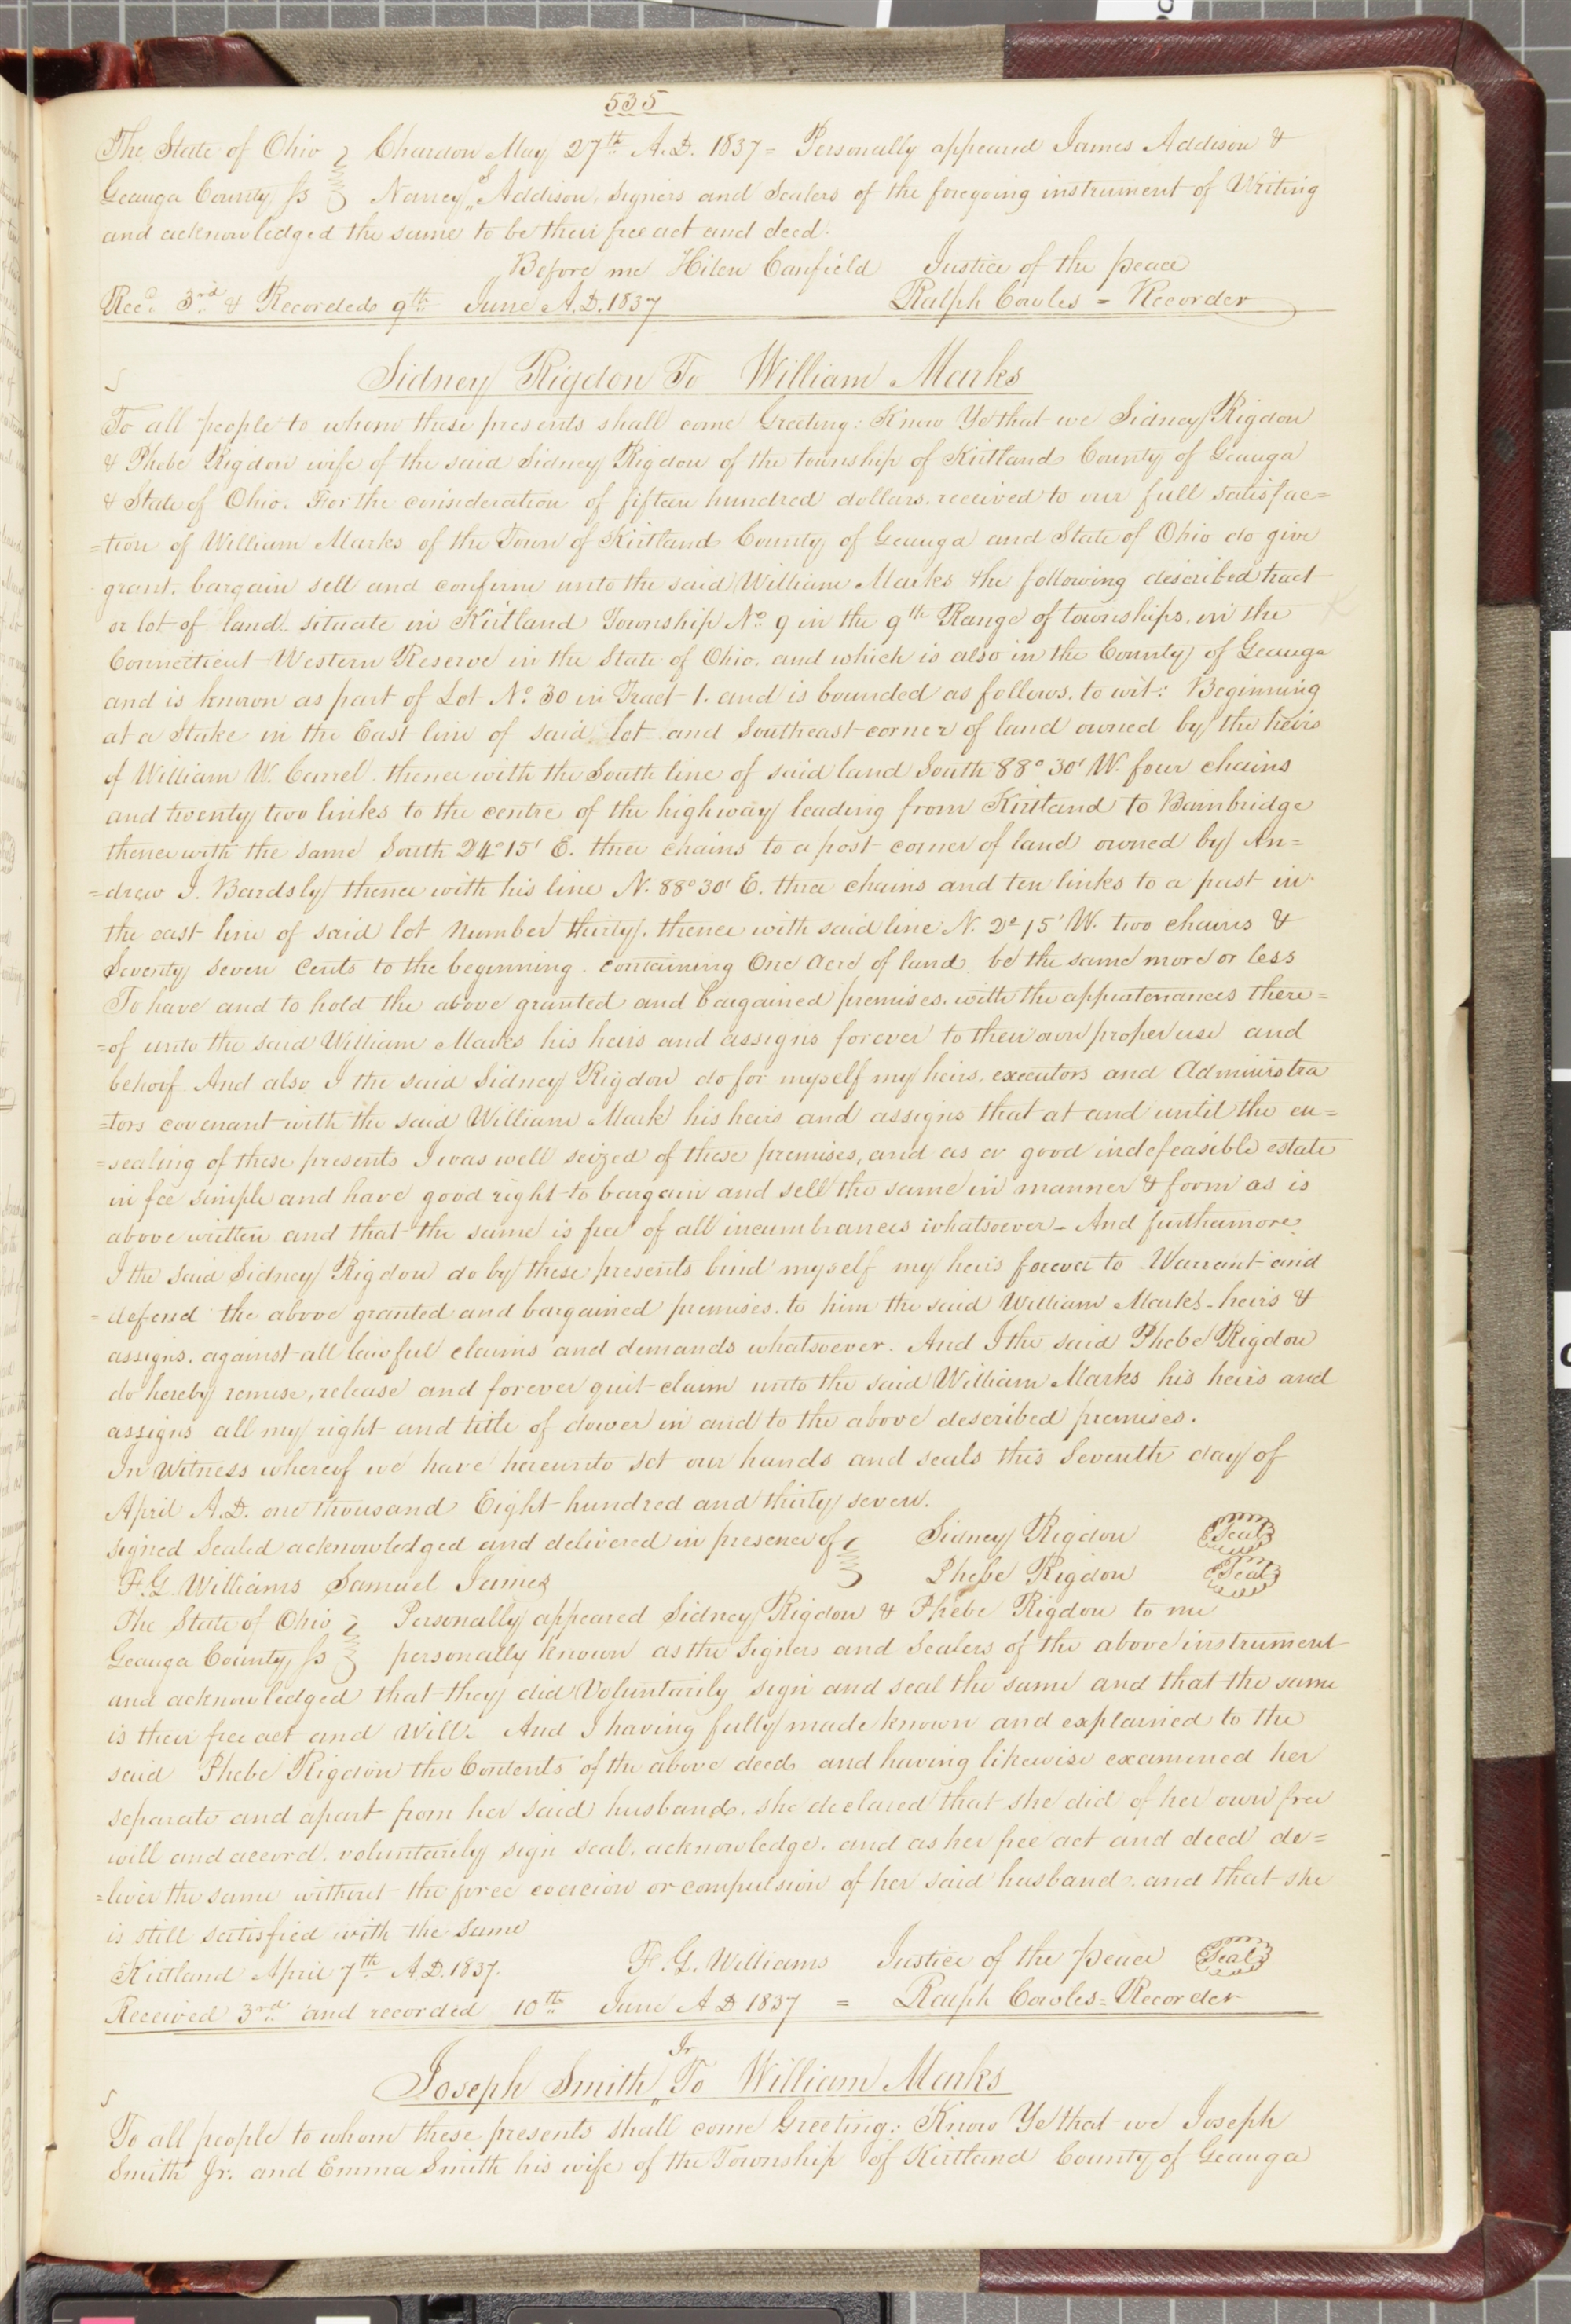 535
The State of Ohio } Chardon May 27th A.D. 1837 = Personally appeared James Addison &
Geauga County Ss } Nancy S Addison, Signers and Sealers of the foregoing instrument of Writing
and acknowledged the same to be their free act and deed.
Before me Hilen Canfield Justice of the peace
Recd. 3rd & Recorded 9th June A.D. 1837 Ralph Cowles = Recorder
Sidney Rigdon To William Marks
To all people to whom these presents shall come Greeting: Know Ye that we Sidney Rigdon
& Phebe Rigdon wife of the said Sidney Rigdon of the township of Kirtland County of Geauga
& State of Ohio. For the consideration of fifteen hundred dollars. received to our full satisfac=
=tion of William Marks of the Town of Kirtland County of Geauga and State of Ohio do give
grant, bargain sell and confirm unto the said William Marks the following described tract
or lot of land. situate in Kirtland Township No. 9 in the 9th Range of townships. in the
Connecticut Western Reserve in the State of Ohio. and which is also in the County of Geauga
and is known as part of Lot No. 30 in Tract 1. and is bounded as follows. to wit: Beginning
at a Stake in the East line of said lot and Southeast corner of land owned by the heirs
of William W. Carrel thence with the South line of said land South 88° 30' W. four chains
and twenty two links to the centre of the highway leading from Kirtland to Bainbridge
thence with the same South 24° 15' E. three chains to a post corner of land owned by An=
=drew J. Bardsly thence with his line N. 88° 30' E. three chains and ten links to a post in
the east line of said lot Number thirty. thence with said line N. 2° 15' W. two chains &
Seventy seven Cents to the beginning. containing One Acre of land be the same more or less
To have and to hold the above granted and bargained premises. with the appurtenances there=
=of unto the said William Marks his heirs and assigns forever to their own proper use and
behoof And also I the said Sidney Rigdon do for myself my heirs, executors and Administra
=tors covenant with the said William Mark his heirs and assigns that at and until the en=
=sealing of these presents I was well seized of these premises, and as a good indefeasible estate
in fee simple and have good right to bargain and sell the same in manner & form as is
above written and that the same is free of all incumbrances whatsoever - And furthermore
I the said Sidney Rigdon do by these presents bind myself my heirs forever to Warrant and
=defend the above granted and bargained premises. to him the said William Marks - heirs &
assigns. against all lawful claims and demands whatsoever. And I the said Phebe Rigdon
do hereby remise, release and forever quit-claim unto the said William Marks his heirs and
assigns all my right and title of dower in and to the above described premises.
In Witness whereof we have hereunto set our hands and seals this Seventh day of
April A.D. one thousand Eight hundred and thirty seven.
signed Sealed acknowledged and delivered in presence of } Sidney Rigdon Seal
F. G. Williams Samuel James } Phebe Rigdon Seal
The State of Ohio } Personally appeared Sidney Rigdon & Phebe Rigdon to me
Geauga County Ss } personally known as the Signers and Sealers of the above instrument
and acknowledged that they did Voluntarily sign and seal the same and that the same
is their free act and Will. And I having fully made known and explained to the
said Phebe Rigdon the Contents of the above deed and having likewise examined her
separate and apart from her said husband. she declared that she did of her own free
will and accord. voluntarily sign seal. acknowledge. and as her free act and deed de=
=liver the same without the force coercion or compulsion of her said husband. and that she
is still satisfied with the same
Kirtland April 7th A.D. 1837. F. G. Williams Justice of the peace Seal
Received 3rd and recorded 10th June A D 1837 = Ralph Cowles = Recorder
Joseph Smith Jr To William Marks
To all people to whom these presents shall come Greeting: Know Ye that we Joseph
Smith Jr. and Emma Smith his wife of the Township of Kirtland County of Geauga